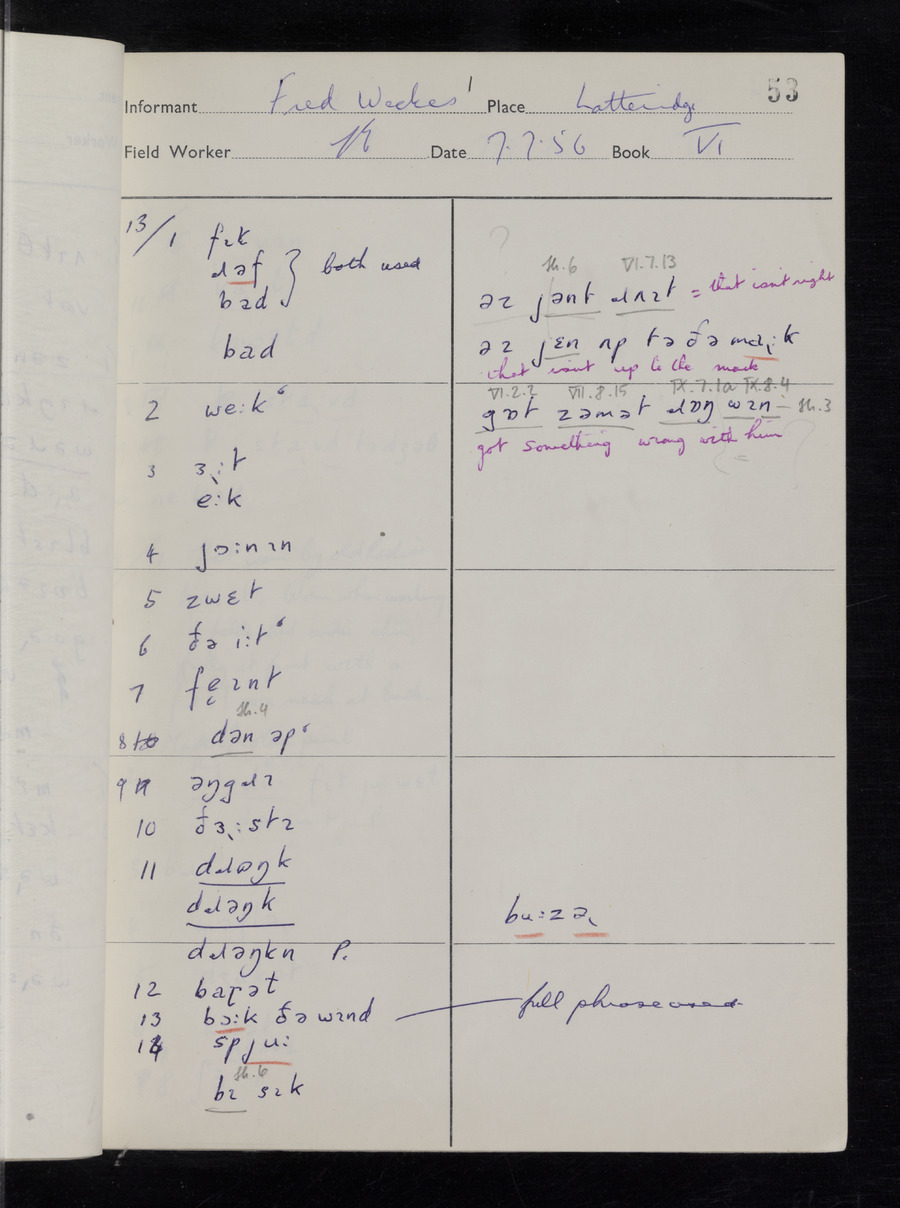 53
Informant Fred Weekes 1 Place Latteridge
Field Worker Date 7.7.56 Book VI
13/1 fɪk
ɹəf } both used
bad
bad
?
Sh.6 VI.7.13
əz jənt ɹʌɪt = that isn't right
əz jɛn ʌp tə ðə maːk
that isn't up to the mark
2 weːk
VI.2.2 VII.8.15 IX.7.1a IX.8.4
gɒt zəmət ɹɒŋ wɪn Sh.3
got something wrong with him
3 ɜːt
eːk
4 jɔːnɪn
5 zwɛt
6 ðə iːt
7 feɪnt
Sh.4
8 dən əp
9 əŋgɹɪ
10 ðɜːstɪ
11 dɹɒŋk
dɹəŋk
buːzə
dɹəŋkn P.
12 baɽət
13 bɔːk ðə wɪnd — full phrase used
14 spjuː
Sh.6
bɪ sɪk